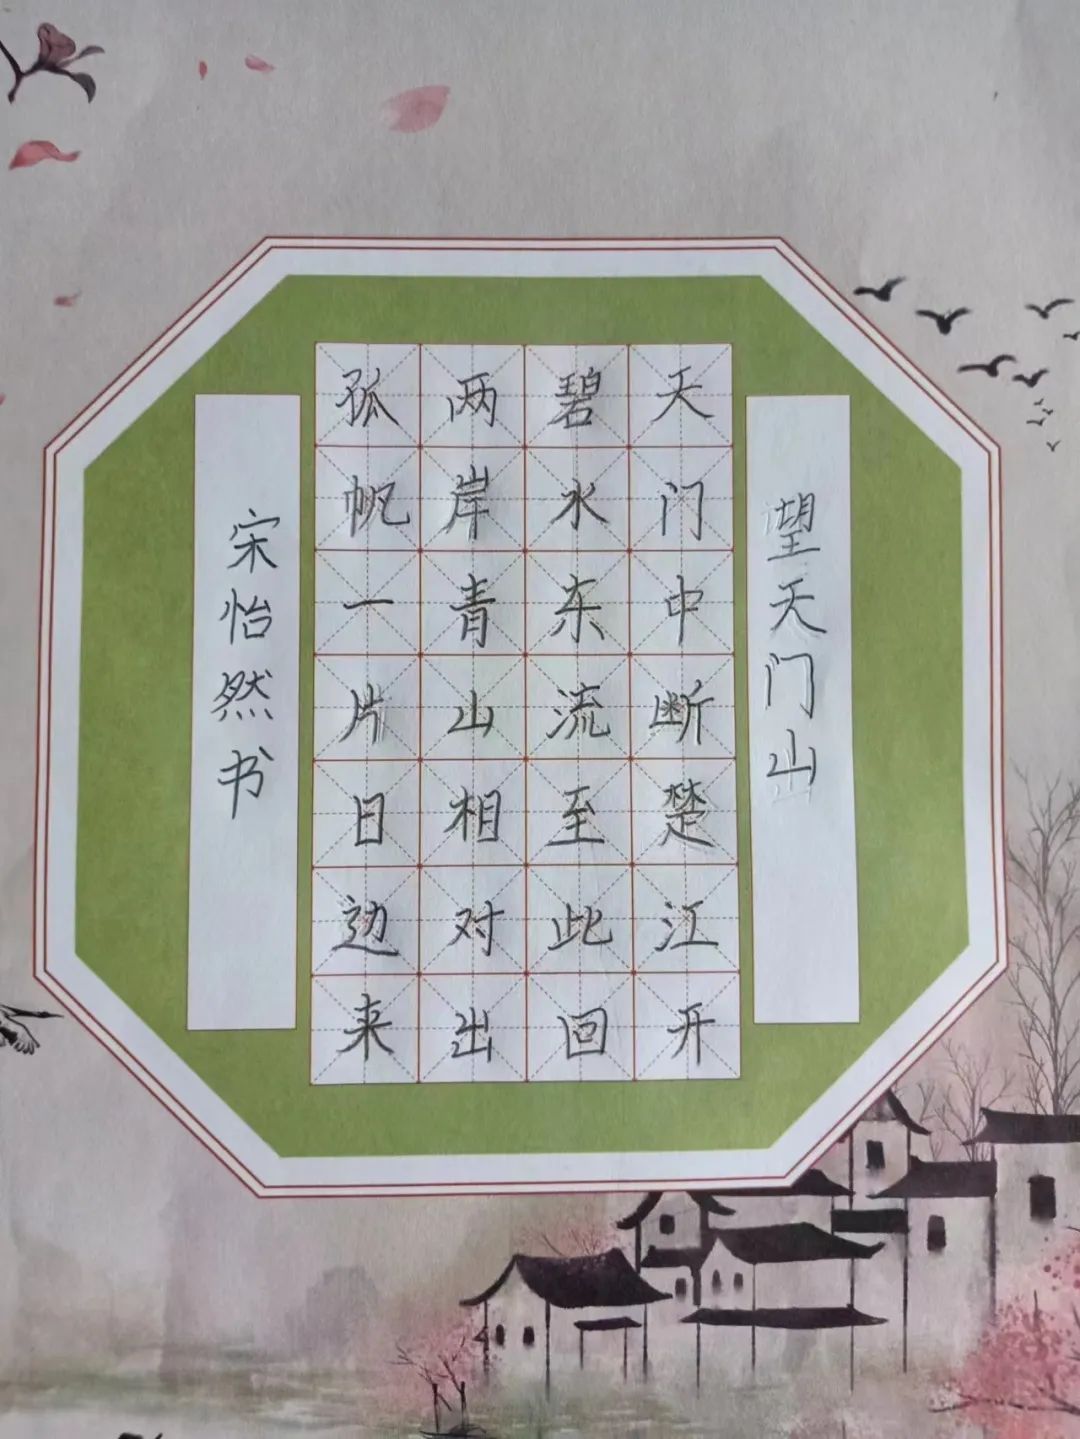 望天门山
天门中断楚江开
碧水东流至此回
两岸青山相对出
孤帆一片日边来
宋怡然书